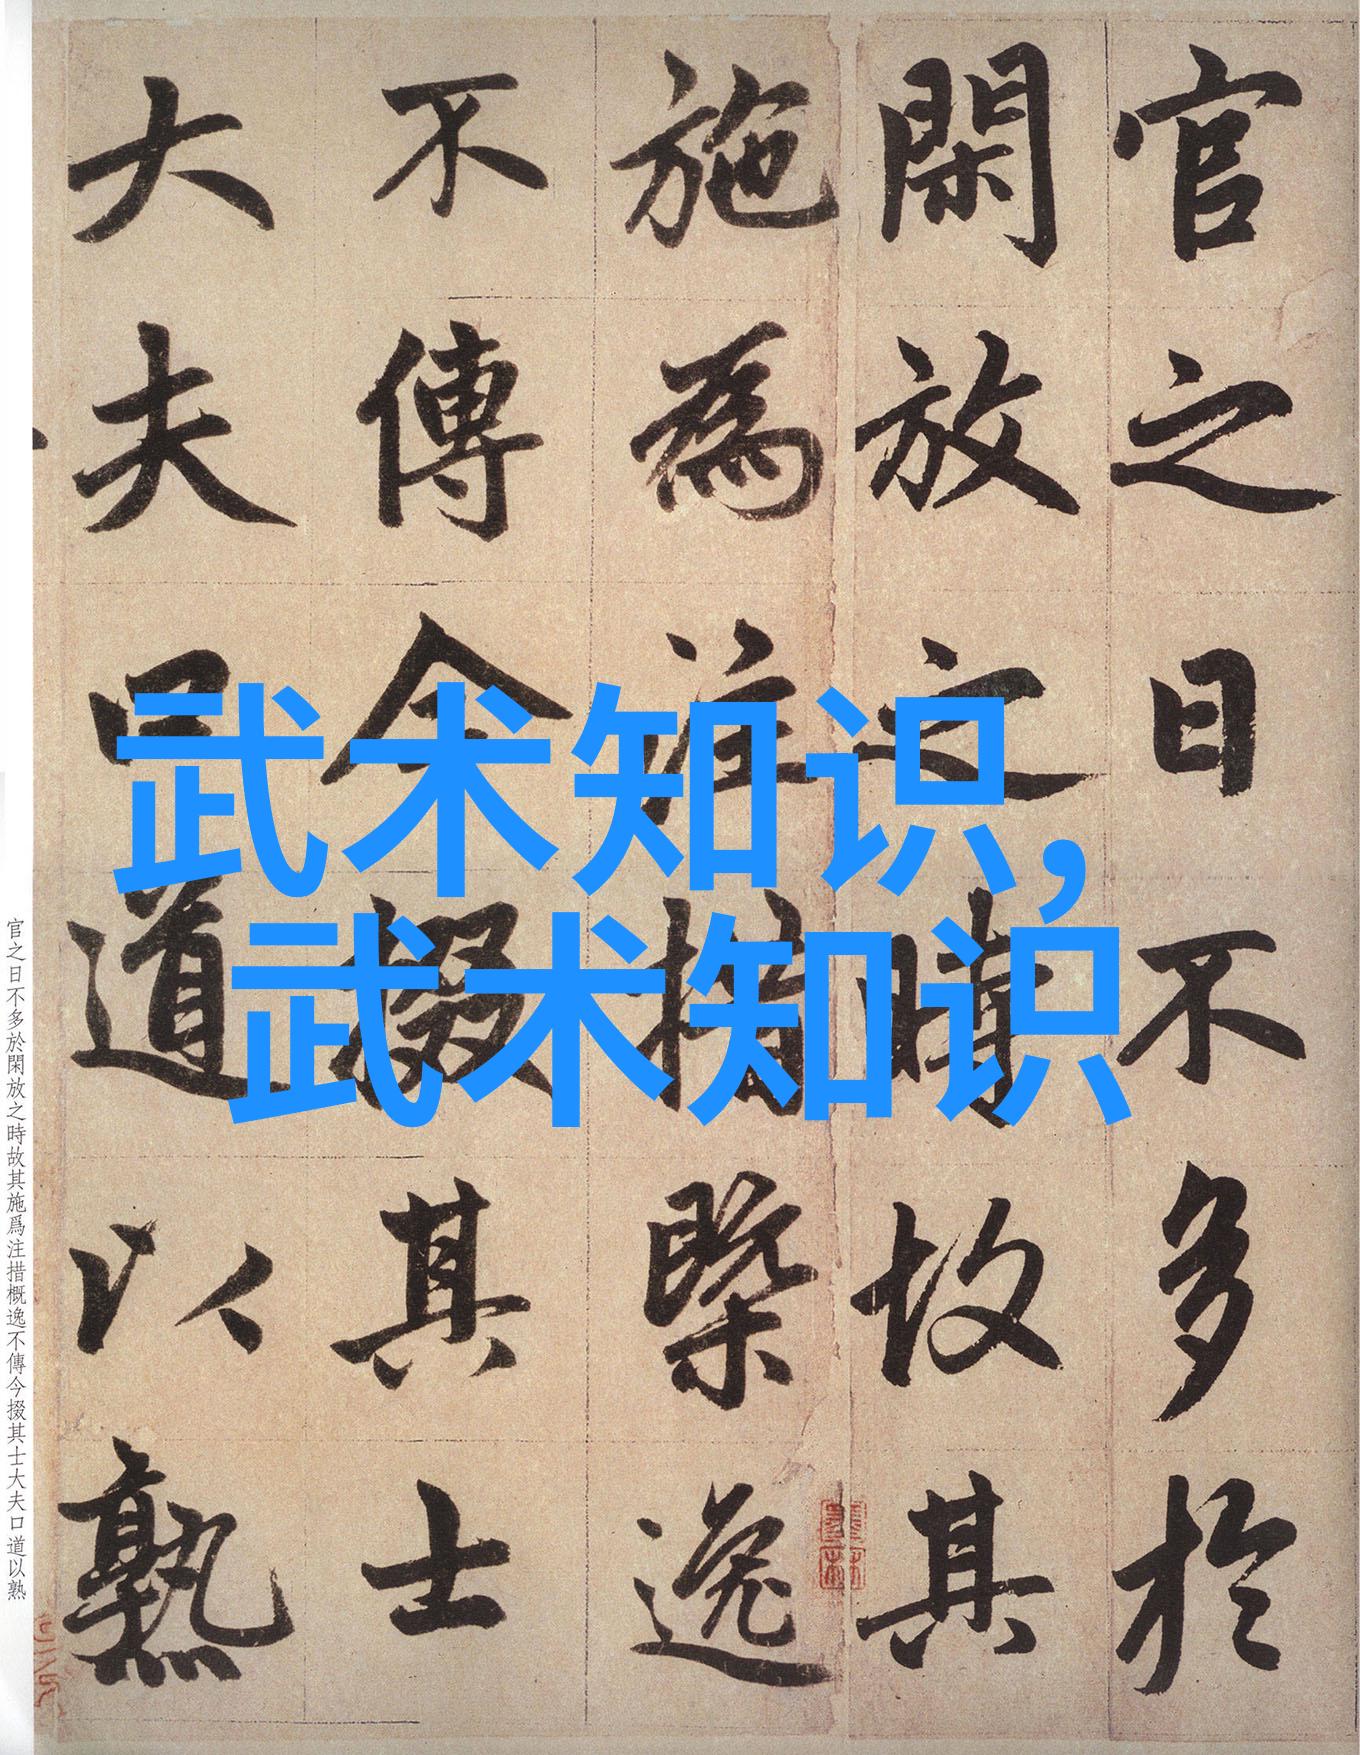 官之日不多於
閑放之時故其
施為注措槩逸
不傳今掇其士
大夫口道以熟
武术知识,
武术知识
官之日不多於閑放之時故其施爲注措概逸不傳今掇其士大夫口道以熟